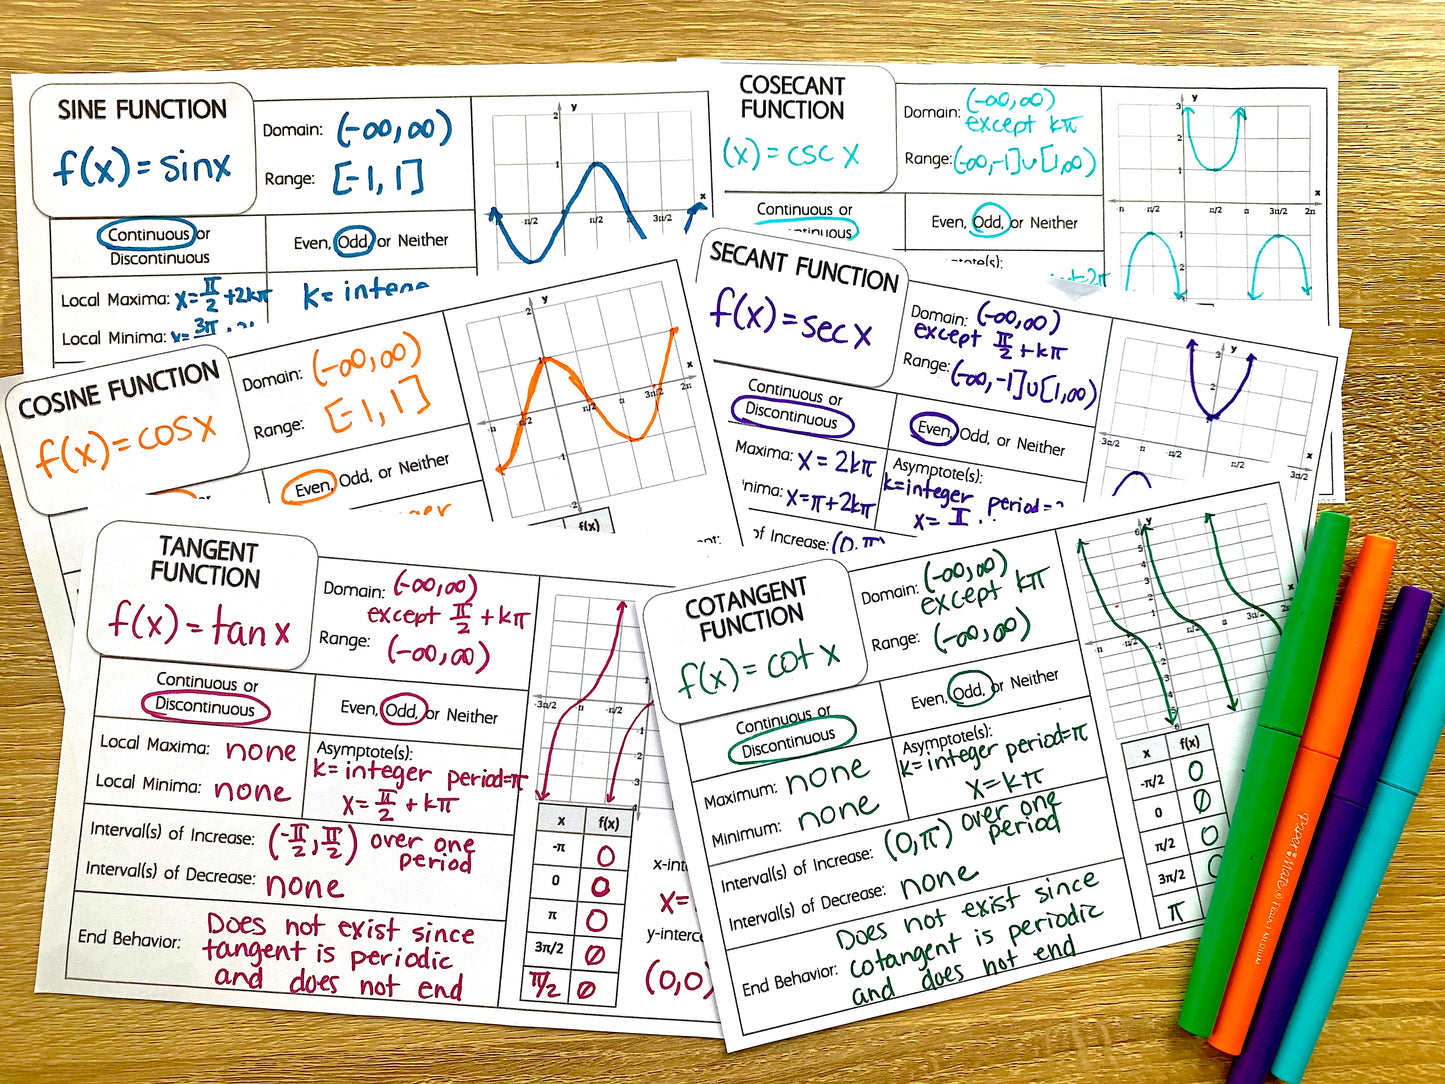 SINE FUNCTION
f(x) = sinx
Domain: (-∞,∞)
Range: [-1, 1]
Continuous or
Discontinuous
Even, Odd, or Neither
Local Maxima: x = π/2 + 2kπ
Local Minima:
k = 
y
2
1
x
-π
-π/2
π/2
π
3π/2
COSECANT
FUNCTION
(x) = csc x
Domain: (-∞,∞)
except kπ
Range: (-∞,-1]∪[1,∞)
Continuous or
Even, Odd, or Neither
y
3
2
1
x
-π
-π/2
π/2
π
3π/2
2π
1
2
COSINE FUNCTION
f(x) = cosx
Domain: (-∞,∞)
Range: [-1, 1]
Even, Odd, or Neither
y
2
1
x
-π
-π/2
π/2
π
3π/2
2π
-1
-2
f(x)
SECANT FUNCTION
f(x) = sec x
Domain: (-∞,∞)
except π/2 + kπ
Range: (-∞,-1]∪[1,∞)
Continuous or
Discontinuous
Even, Odd, or Neither
Maxima: x = 2kπ
x = π + 2kπ
Asymptote(s):
k=integer period=
x=
of Increase: (0,π
3
y
2
1
3π/2
-π
-π/2
π/2
3π/2
TANGENT
FUNCTION
f(x) = tan x
Domain: (-∞,∞)
except π/2 + kπ
Range: (-∞,∞)
Continuous or
Discontinuous
Even, Odd, or Neither
Local Maxima: none
Local Minima: none
Asymptote(s):
k= integer period=π
x = π/2 + kπ
Interval(s) of Increase: (-π/2, π/2) over one
period
Interval(s) of Decrease: none
End Behavior: Does not exist since
tangent is periodic
and does not end
-3π/2
-π
-π/2
x f(x)
-π 0
0 0
π 0
3π/2 Ø
π/2 Ø
x-int
x=
y-interc
(0,0)
COTANGENT
FUNCTION
f(x) = cot x
Domain: (-∞,∞)
except kπ
Range: (-∞,∞)
Continuous or
Discontinuous
Even, Odd, or Neither
Maximum: none
Minimum: none
Asymptote(s):
k= integer period=π
x = kπ
Interval(s) of Increase: (0,π) over one
period
Interval(s) of Decrease: none
End Behavior: Does not exist since
cotangent is periodic
and does not end
y
x
-π
-π/2
π/2
π
3π/2
x f(x)
-π/2 0
0 Ø
π/2 0
3π/2 0
π
Paper Mate Flair! MEDIUM